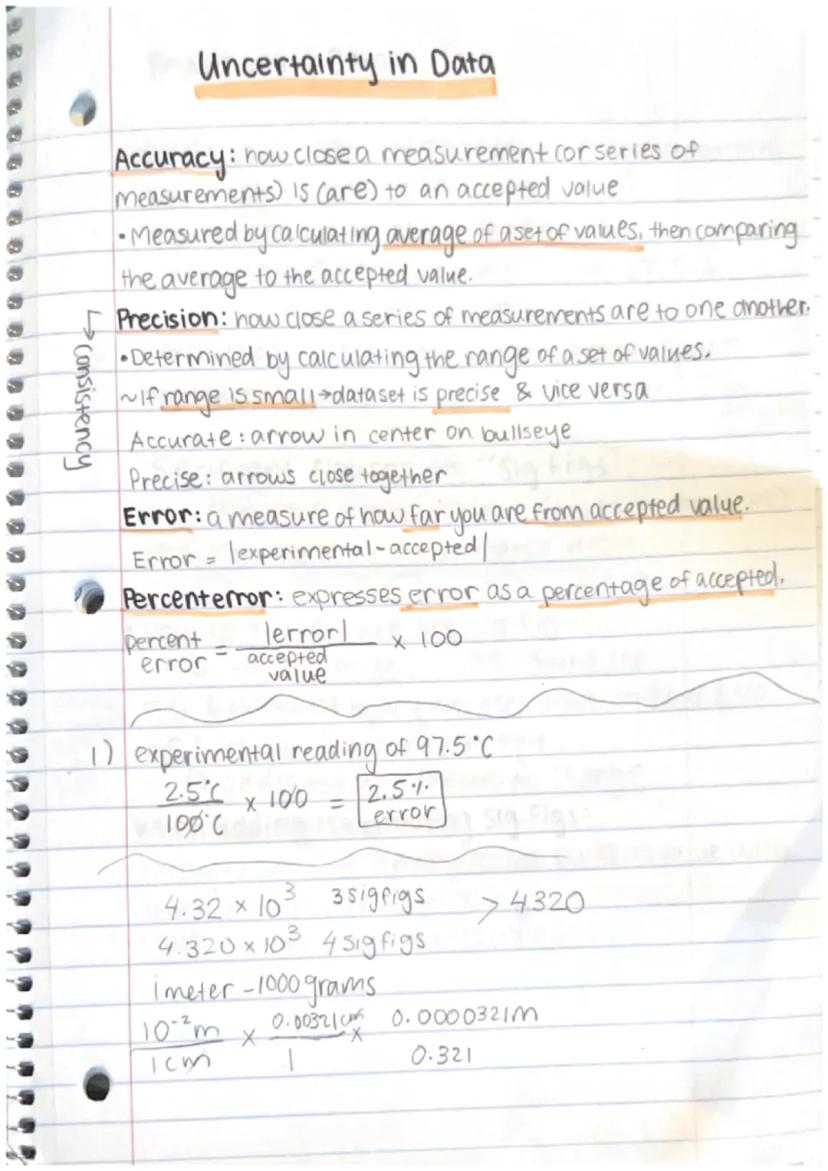 Uncertainty in Data
Accuracy: how close a measurement (or series of
measurements) is (are) to an accepted value
• Measured by calculating average of a set of values, then comparing
the average to the accepted value.
Precision: how close a series of measurements are to one another.
↳ consistency
• Determined by calculating the range of a set of values.
~If range is small → dataset is precise & vice versa
Accurate: arrow in center on bullseye
Precise: arrows close together
Error: a measure of how far you are from accepted value.
Error = |experimental - accepted|
Percent error: expresses error as a percentage of accepted.
percent error = |error| / accepted value × 100
1) experimental reading of 97.5°C
2.5°C / 100°C × 100 = 2.5% error
4.32 × 10³ 3 sigfigs > 4320
4.320 × 10³ 4 sig figs
1 meter - 1000 grams
10⁻² m / 1 cm × 0.00321 cm / 1 × 0.0000321m
0.321